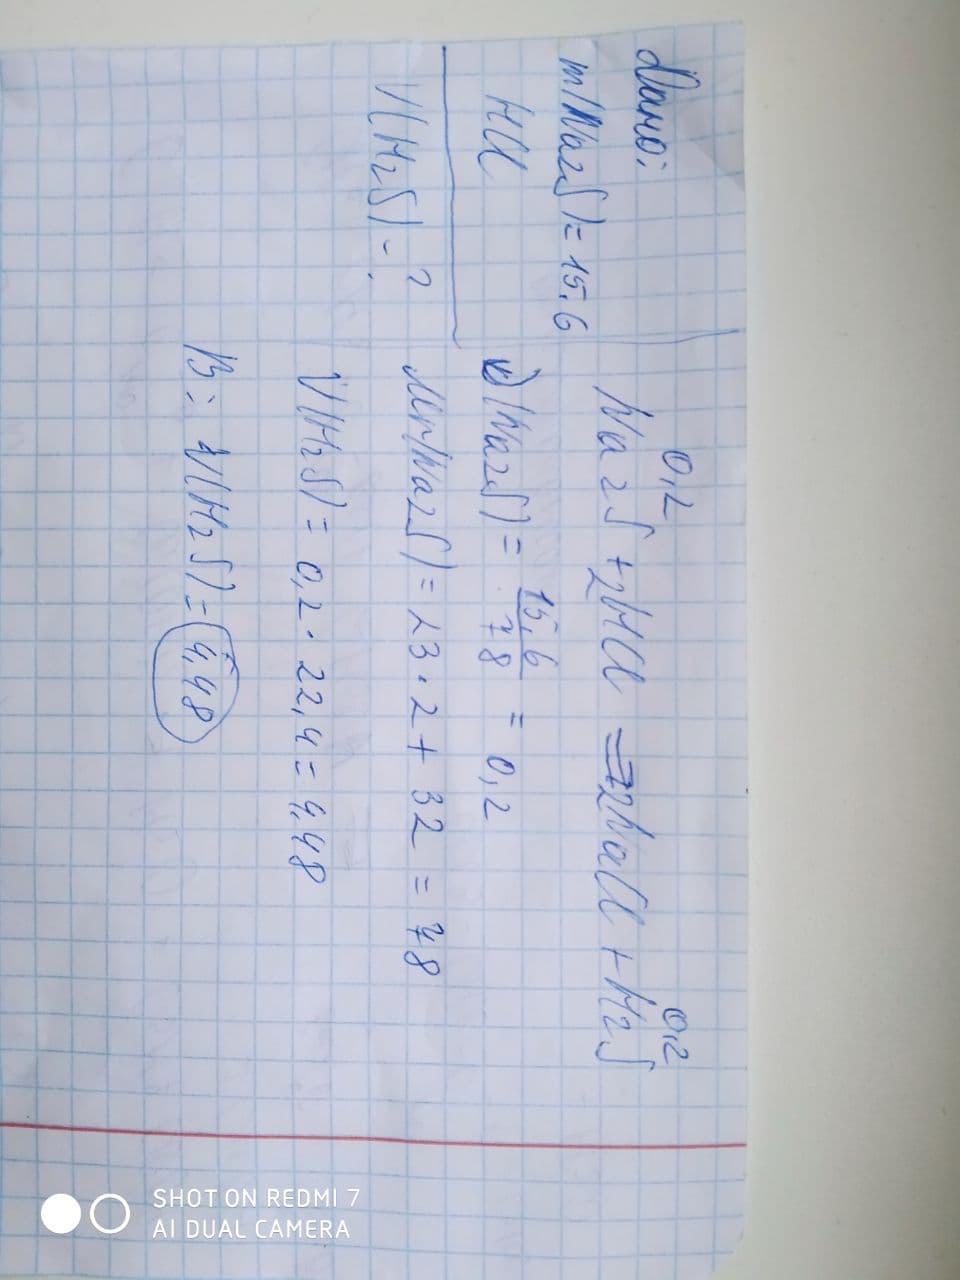 Дано:
m(Na2S)=15.6
HCl
V(H2S)-?
0,2 0,2
Na2S+2HCl=2NaCl+H2S
(Na2S)=15,6/78=0,2
Mr(Na2S)=23·2+32=78
V(H2S)=0,2·22,4=4,48
В: V(H2S)-4,48
SHOT ON REDMI 7
AI DUAL CAMERA